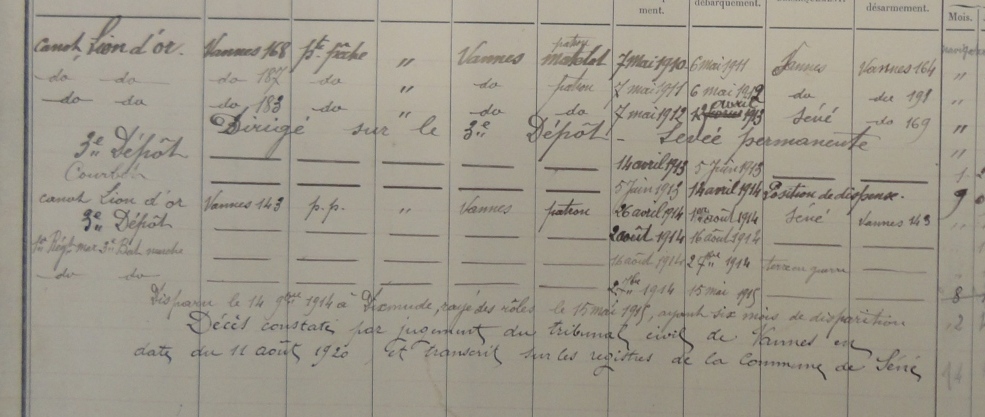 ment. débarquement. désarmement. Mois.
canot Lion d'or. Vannes 168 pte pêche " Vannes patron matelot 7 mai 1910 6 mai 1911 Vannes Vannes 164 "
do do do 187 do " do patron 7 mai 1911 6 mai 1912 do do 198 "
do do do 183 do " do do 7 mai 1912 13 avril 1913 Séné do 169 "
Dirigé sur le 3e Dépôt - Levée permanente
3e Dépôt 14 avril 1913 5 juin 1913 "
Courbet 5 juin 1913 14 avril 1914 Position de dispense. 9
canot Lion d'or Vannes 143 p.p. " Vannes patron 26 avril 1914 1er août 1914 Séné Vannes 143
3e Dépôt 2 août 1914 16 août 1914
1er Régt mar 3e Bat 16 août 1914 1914 guerre
do do 1914 15 mai 1915 8
Disparu le 14 9bre 1914 à Dixmude, rayé des rôles le 15 mai 1915, ayant six mois de disparition 2
Décès constaté par jugement du tribunal civil de Vannes en
date du 11 août 1920 Et transcrit sur les registres de la Commune de Séné